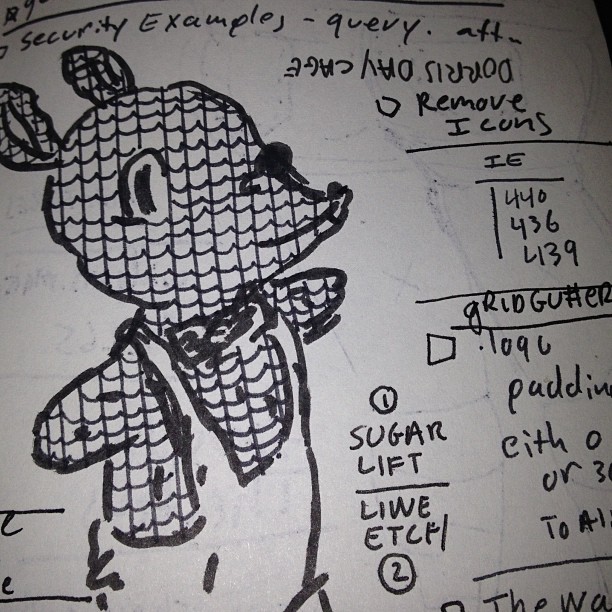 security Examples - query. att..
DORRIS DAY CAGE
Remove
Icons
IE
440
436
439
gRIDGUtteR
.logo
paddin
eith 0
or 30
To All
①
SUGAR
LIFT
LINE
ETCH
②
The wa
e